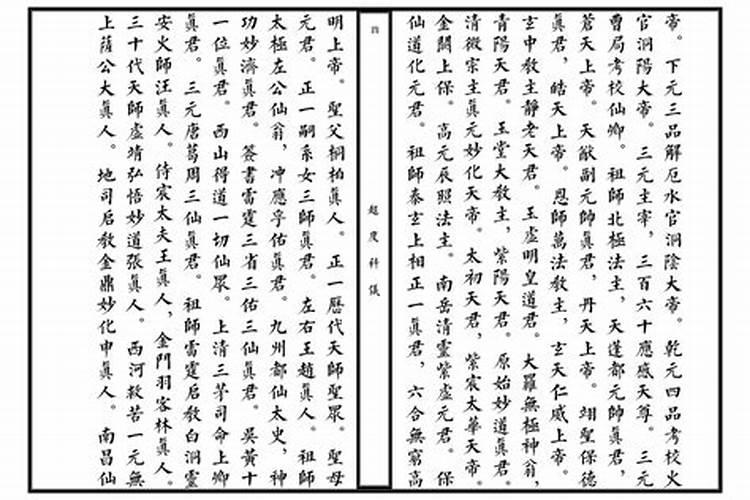 帝。下元三品解厄水官洞陰大帝。乾元四品考校火
官洞陽大帝。三元主宰，三百六十應感天尊。三元
曹局考校仙卿。祖師北極法主，天蓬都元帥眞君，
蒼天上帝。天猷副元帥眞君，丹天上帝。翊聖保德
眞君，皓天上帝。恩師萬法教主，玄天仁威上帝。
玄中教主靜老天君。玉虛明皇道君。大羅無極神翁，
青陽天君。玉堂大教主，紫陽天君。原始妙道眞君。
清微宗主眞元妙化天帝。太初天君，紫宸太華天帝。
金闕上保。高元辰照法主。南岳清靈紫虛元君。保
仙道化元君。祖師泰玄上相正一眞君，六合無窮高
四
超度科儀
明上帝。聖父桐柏眞人。正一歷代天師聖眾。聖母
元君。正一嗣系女三師眞君。左右王趙眞人。祖師
太極左公仙翁，冲應孚佑眞君。九州都仙太史，神
功妙濟眞君。簽書雷霆三省三佑三仙眞君。吳黃十
一位眞君。西山得道一切仙眾。上清三茅司命上卿
眞君。三元唐葛周三仙眞君。祖師雷霆启教白洞靈
安火師汪眞人。侍宸太夫王眞人，金門羽客林眞人。
三十代天師虛靖弘悟妙道張眞人。西河救苦一元無
上薩公大眞人。地司启教金鼎妙化申眞人。南昌仙